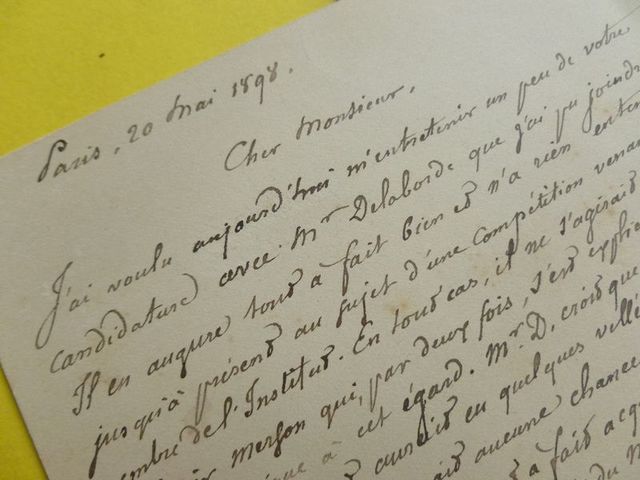 Paris, 20 Mai 1898.
Cher Monsieur,
J'ai voulu aujourd'hui m'entretenir un peu de votre
candidature avec Mr Delaborde que j'ai pu joindre
Il en augure tout à fait bien et n'a rien enten
jusqu'à présent au sujet d'une compétition venan
embre de l'Institut. En tout cas, il ne s'agirait
Merson qui, par deux fois, s'est expliq
à cet égard. Mr. D. croit que
aurait eu quelques vellé
aucune chance
à fait acq
du